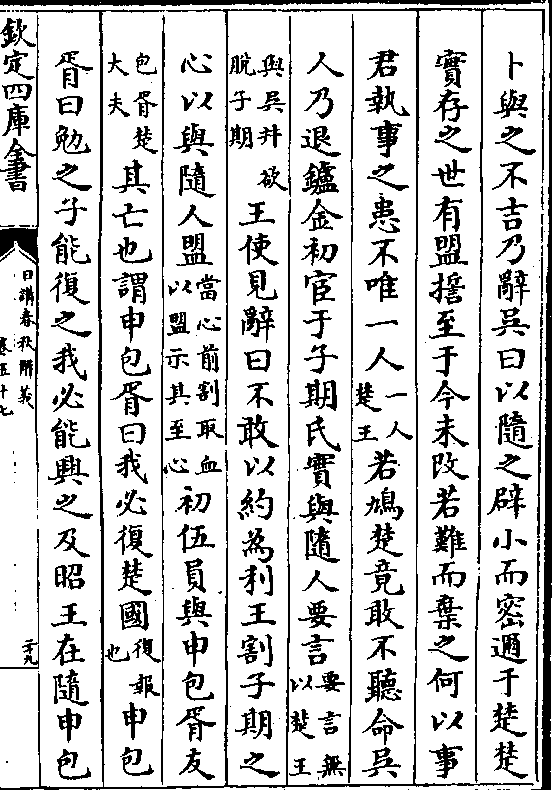 卜與之不吉乃辭吳曰以隨之辟小而密邇于楚楚
實存之世有盟誓至于今未改若難而棄之何以事
君執事之患不唯一人一人楚王若鳩楚竟敢不聽命吳
人乃退鑪金初宦于子期氏實與隨人要言要言無以楚王
與吳并欲脫子期王使見辭曰不敢以約為利王割子期之
心以與隨人盟當心前割取血以盟示其至心初伍員與申包胥友
包胥楚大夫其亡也謂申包胥曰我必復楚國復報也申包
胥曰勉之子能復之我必能興之及昭王在隨申包
欽定四庫全書
日講春秋解義
卷五十七
二十九